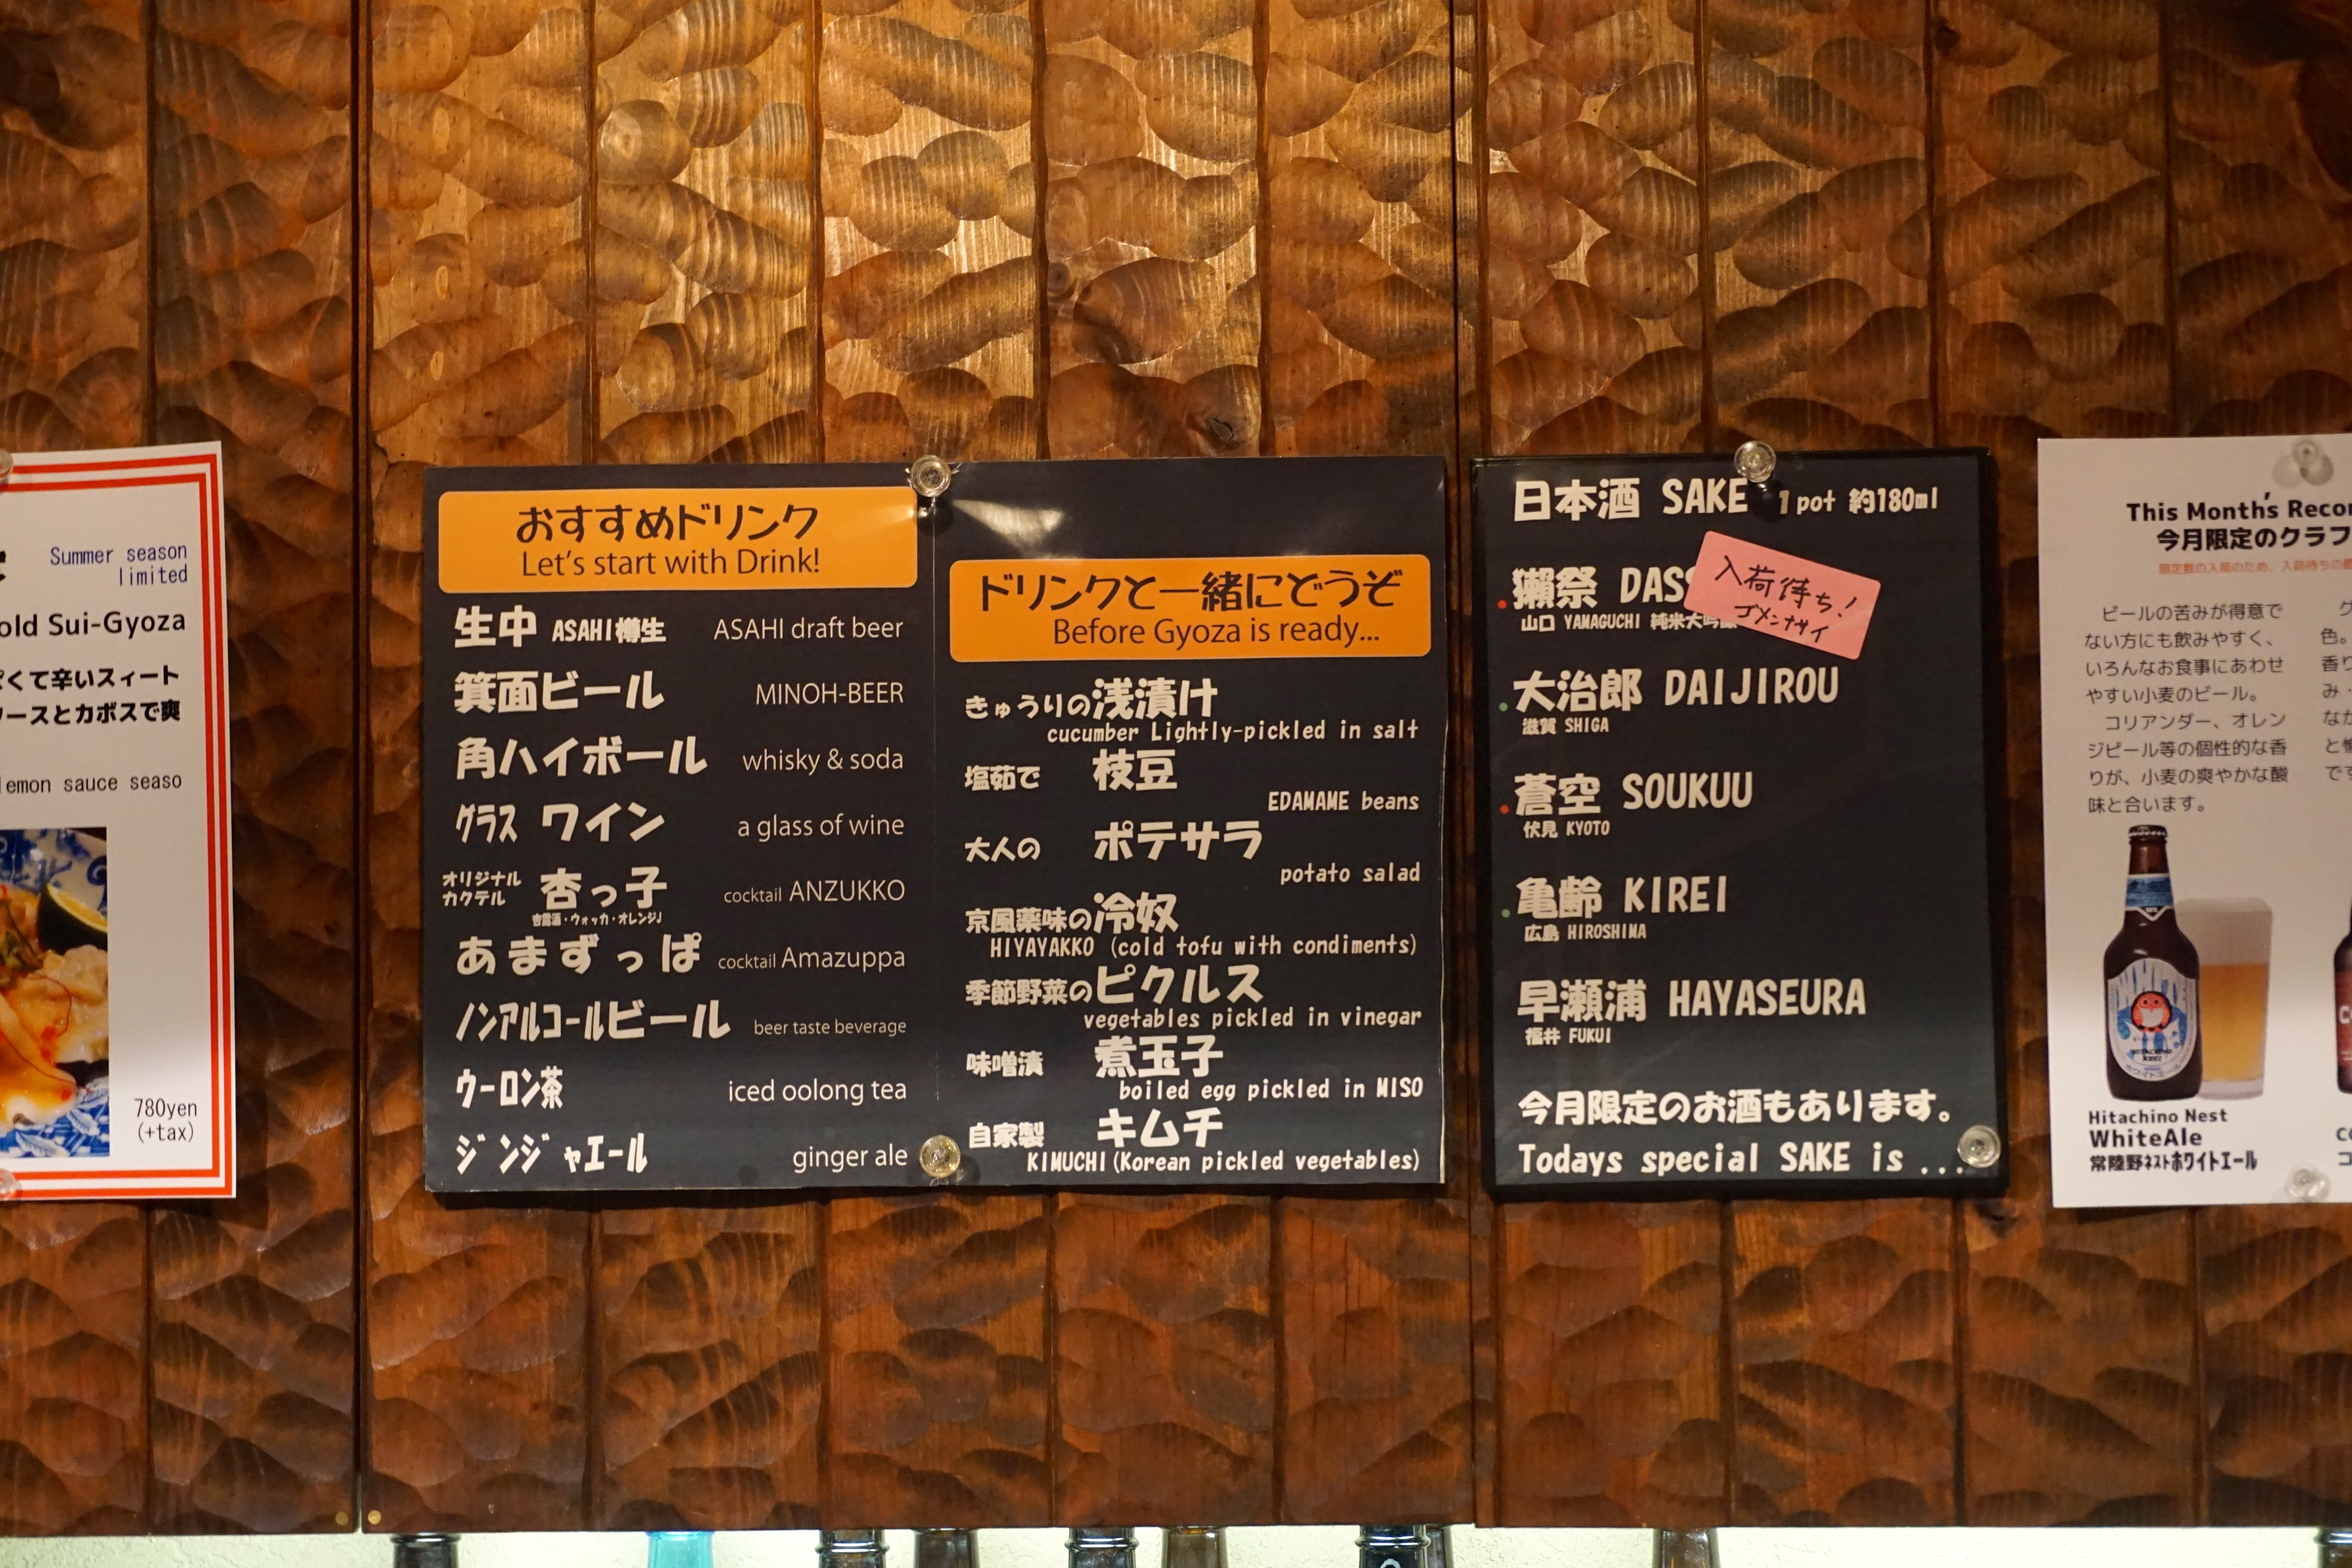 Summer season
limited
old Sui-Gyoza
ぱくて辛いスィート
ソースとカボスで爽
lemon sauce seaso
780yen
(+tax)
おすすめドリンク
Let's start with Drink!
生中 ASAHI樽生 ASAHI draft beer
箕面ビール MINOH-BEER
角ハイボール whisky & soda
グラス ワイン a glass of wine
オリジナル
カクテル 杏っ子 cocktail ANZUKKO
杏露酒・ウォッカ・オレンジJ
あまずっぱ cocktail Amazuppa
ノンアルコールビール beer taste beverage
ウーロン茶 iced oolong tea
ジンジャエール ginger ale
ドリンクと一緒にどうぞ
Before Gyoza is ready...
きゅうりの浅漬け
cucumber Lightly-pickled in salt
塩茹で 枝豆
EDAMAME beans
大人の ポテサラ
potato salad
京風薬味の冷奴
HIYAYAKKO (cold tofu with condiments)
季節野菜のピクルス
vegetables pickled in vinegar
味噌漬 煮玉子
boiled egg pickled in MISO
自家製 キムチ
KIMUCHI(Korean pickled vegetables)
日本酒 SAKE 1 pot 約180ml
獺祭 DAS
山口 YAMAGUCHI 純米大吟醸
入荷待ち!
ゴメンナサイ
大治郎 DAIJIROU
滋賀 SHIGA
蒼空 SOUKUU
伏見 KYOTO
亀齢 KIREI
広島 HIROSHIMA
早瀬浦 HAYASEURA
福井 FUKUI
今月限定のお酒もあります。
Todays special SAKE is ...
This Month's Recor
今月限定のクラフ
限定数の入荷のため、入荷待ちの
ビールの苦みが得意で
ない方にも飲みやすく、
いろんなお食事にあわせ
やすい小麦のビール。
コリアンダー、オレン
ジピール等の個性的な香
りが、小麦の爽やかな酸
味と合います。
色。
香り
み
なか
と
です
Hitachino Nest
WhiteAle
常陸野ネストホワイトエール